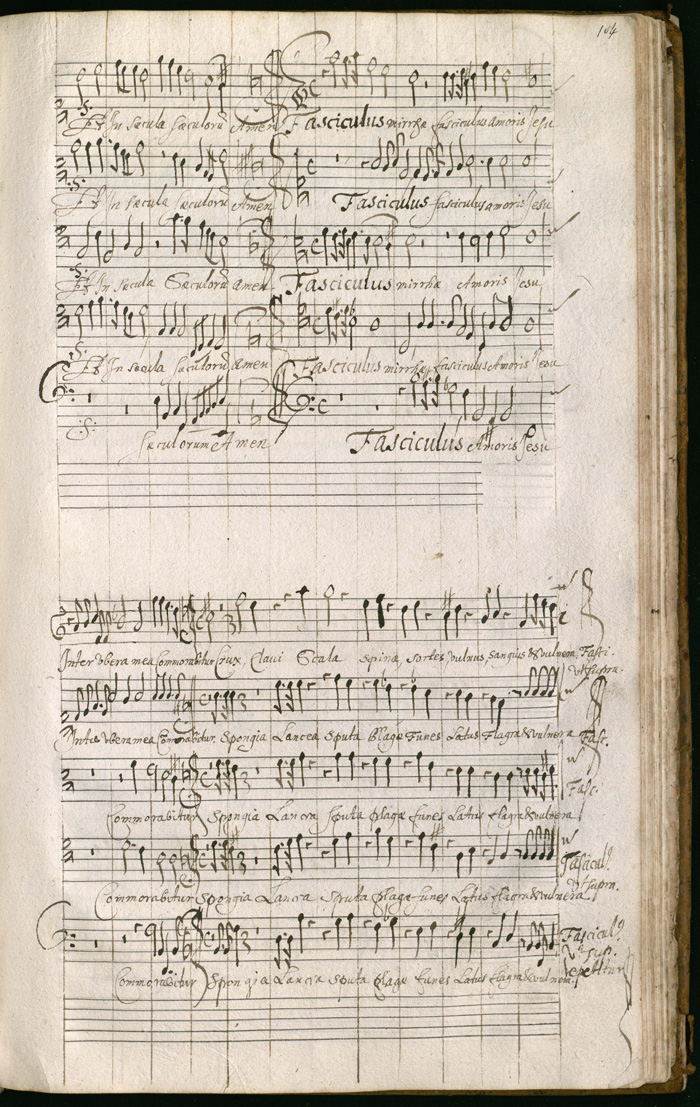 104
Et In sæcula sæculorũ Amen Fasciculus mirrhæ fasciculus amoris Jesu
Et In sæcula sæculorũ Amen Fasciculus fasciculus amoris Jesu
Et In sæcula Sæculorũ amen Fasciculus mirrhæ Amoris Jesu
Et In sæcula sæculorũ amen Fasciculus mirrhæ fasciculus Amoris Jesu
sæculorum Amen Fasciculus Amoris Jesu
Inter Vbera mea Commorabitur Crux, Claui Scala spina, sortes, vulnus, sanguis & vulnera, Fasci.
vt supra.
Inter Vbera mea Commorabitur. Spongia Lancea sputa plagæ Funes Latus Flagra & vulnera Fasc.
Commorabitur Spongia Lancea sputa plagæ funes Latus flagra & vulnera Fasc.
Commorabitur Spongia Lancea Sputa plagæ funes Latus flagra & vulnera
Fascicul9
vt supra.
Commorabitur Spongia Lancea sputa plagæ funes Latus flagra & vulnera.
Fascicul9
vt sup.
repetitur